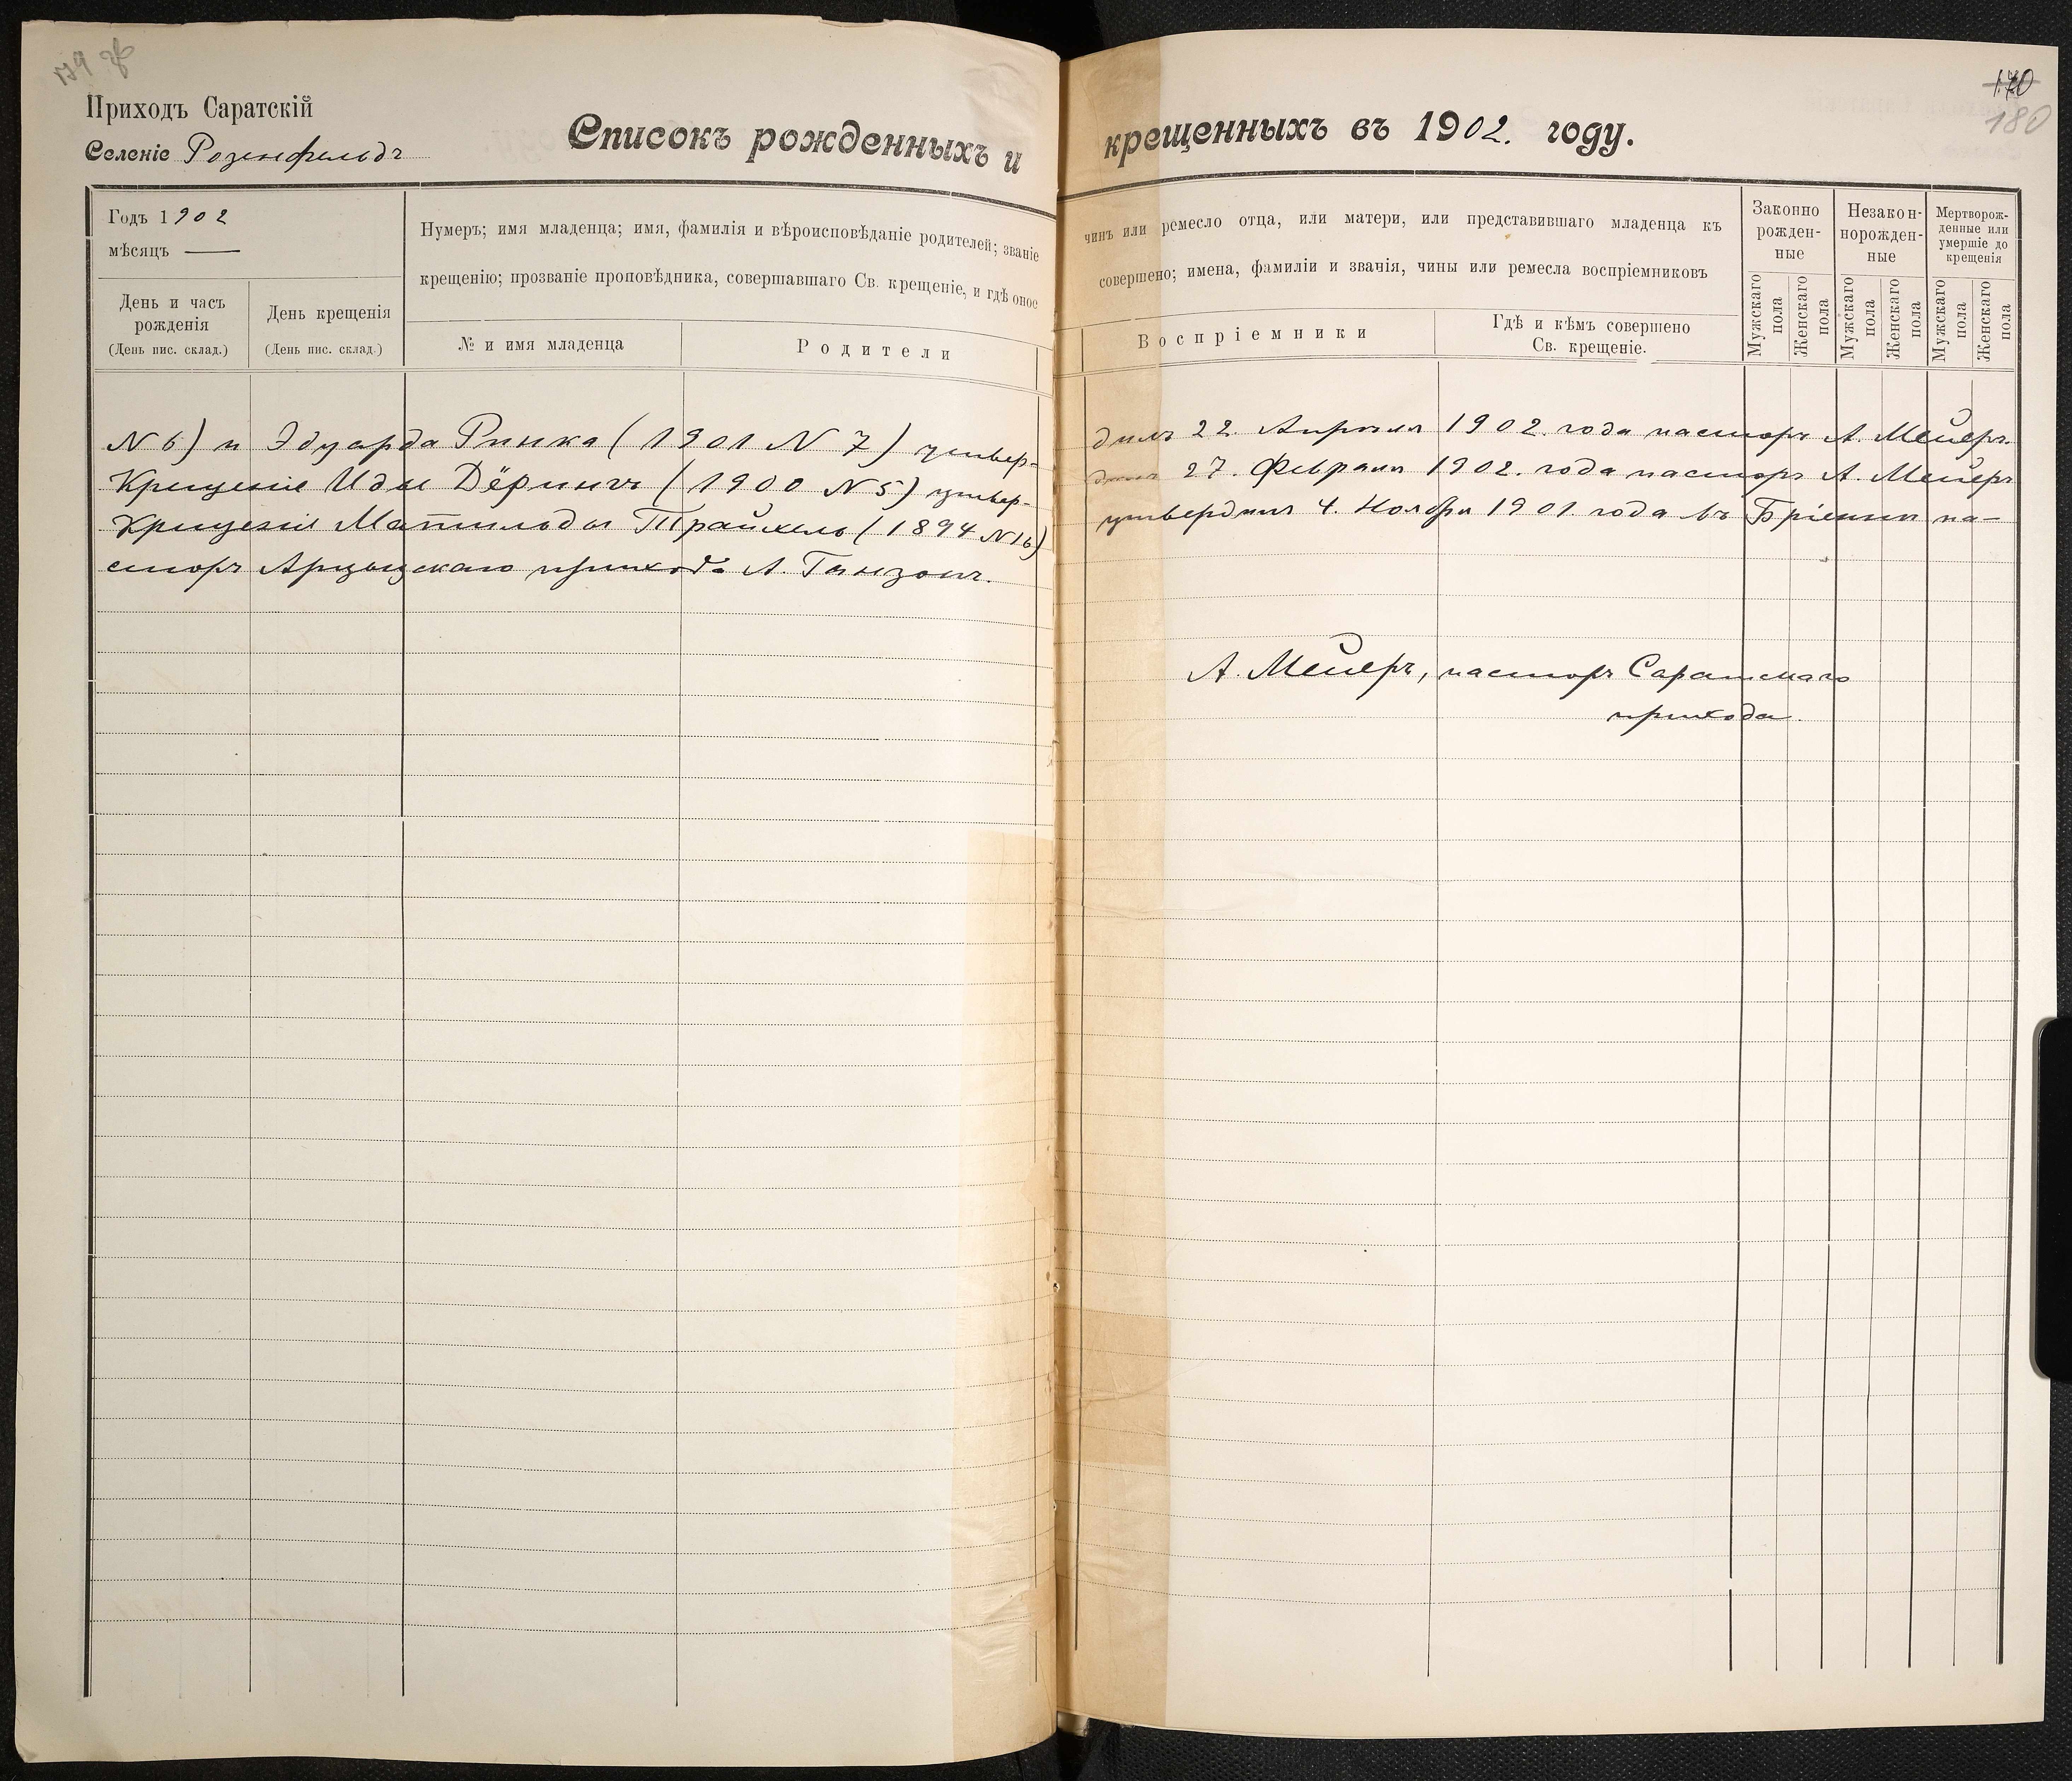 179 об
Приходъ Саратскій
Селеніе Розенфельдъ
Списокъ рожденныхъ и
Годъ 1902
мѣсяцъ —
Нумеръ; имя младенца; имя, фамилія и вѣроисповѣданіе родителей; званіе
крещенію; прозваніе проповѣдника, совершавшаго Св. крещеніе, и гдѣ оное
День и часъ
рожденія
(День пис. склад.)
День крещенія
(День пис. склад.)
№ и имя младенца
Родители
N 6) и Эдуарда Ринка (1901 N 7) утвер-
Крещеніе Иды Дёрингъ (1900 N 5) утвер-
Крещеніе Матильды Трайхель (1894 N 16)
сторъ Арцызскаго прихода А. Ганзонъ.
170
180
крещенныхъ въ 1902. году.
чинъ или ремесло отца, или матери, или представившаго младенца къ
совершено; имена, фамиліи и званія, чины или ремесла воспріемниковъ
Воспріемники
Гдѣ и кѣмъ совершено
Св. крещеніе.
Законно
рожден-
ные
Незакон-
норожден-
ные
Мертворож-
денные или
умершіе до
крещенія
Мужскаго
пола
Женскаго
пола
Мужскаго
пола
Женскаго
пола
Мужскаго
пола
Женскаго
пола
дилъ 22. Апрѣля 1902. года пасторъ А. Мейеръ.
дилъ 27. Февраля 1902. года пасторъ А. Мейеръ
утвердилъ 4. Ноября 1901. года въ Бріенни па-
А. Мейеръ, пасторъ Саратскаго
прихода.